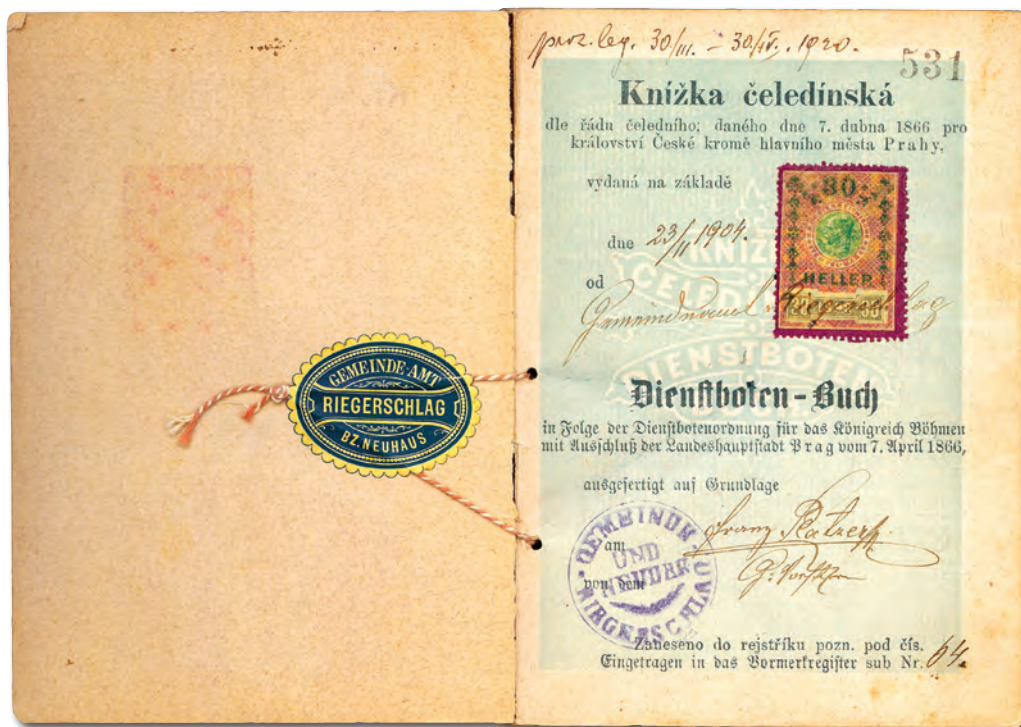 GEMEINDE-AMT
RIEGERSCHLAG
BZ. NEUHAUS
prov. leg. 30/III. – 30/IV. 1920.
531
Knížka čeledínská
dle řádu čeledního; daného dne 7. dubna 1866 pro
království České kromě hlavního města Prahy,
vydaná na základě
30
HELLER
dne 23/II 1904.
od
Riegerschlag
KNÍŽ
ČELEDÍN
DIENSTBOTEN
Dienſtboten-Buch
in Folge der Dienſtbotenordnung für das Königreich Böhmen
mit Ausſchluß der Landeshauptſtadt Prag vom 7. April 1866,
ausgefertigt auf Grundlage
GEMEINDE
UND
Franz
am
von dem
G. Vorſteher
Zaneseno do rejstříku pozn. pod čís.
Eingetragen in das Vormerkregiſter sub Nr. 64.